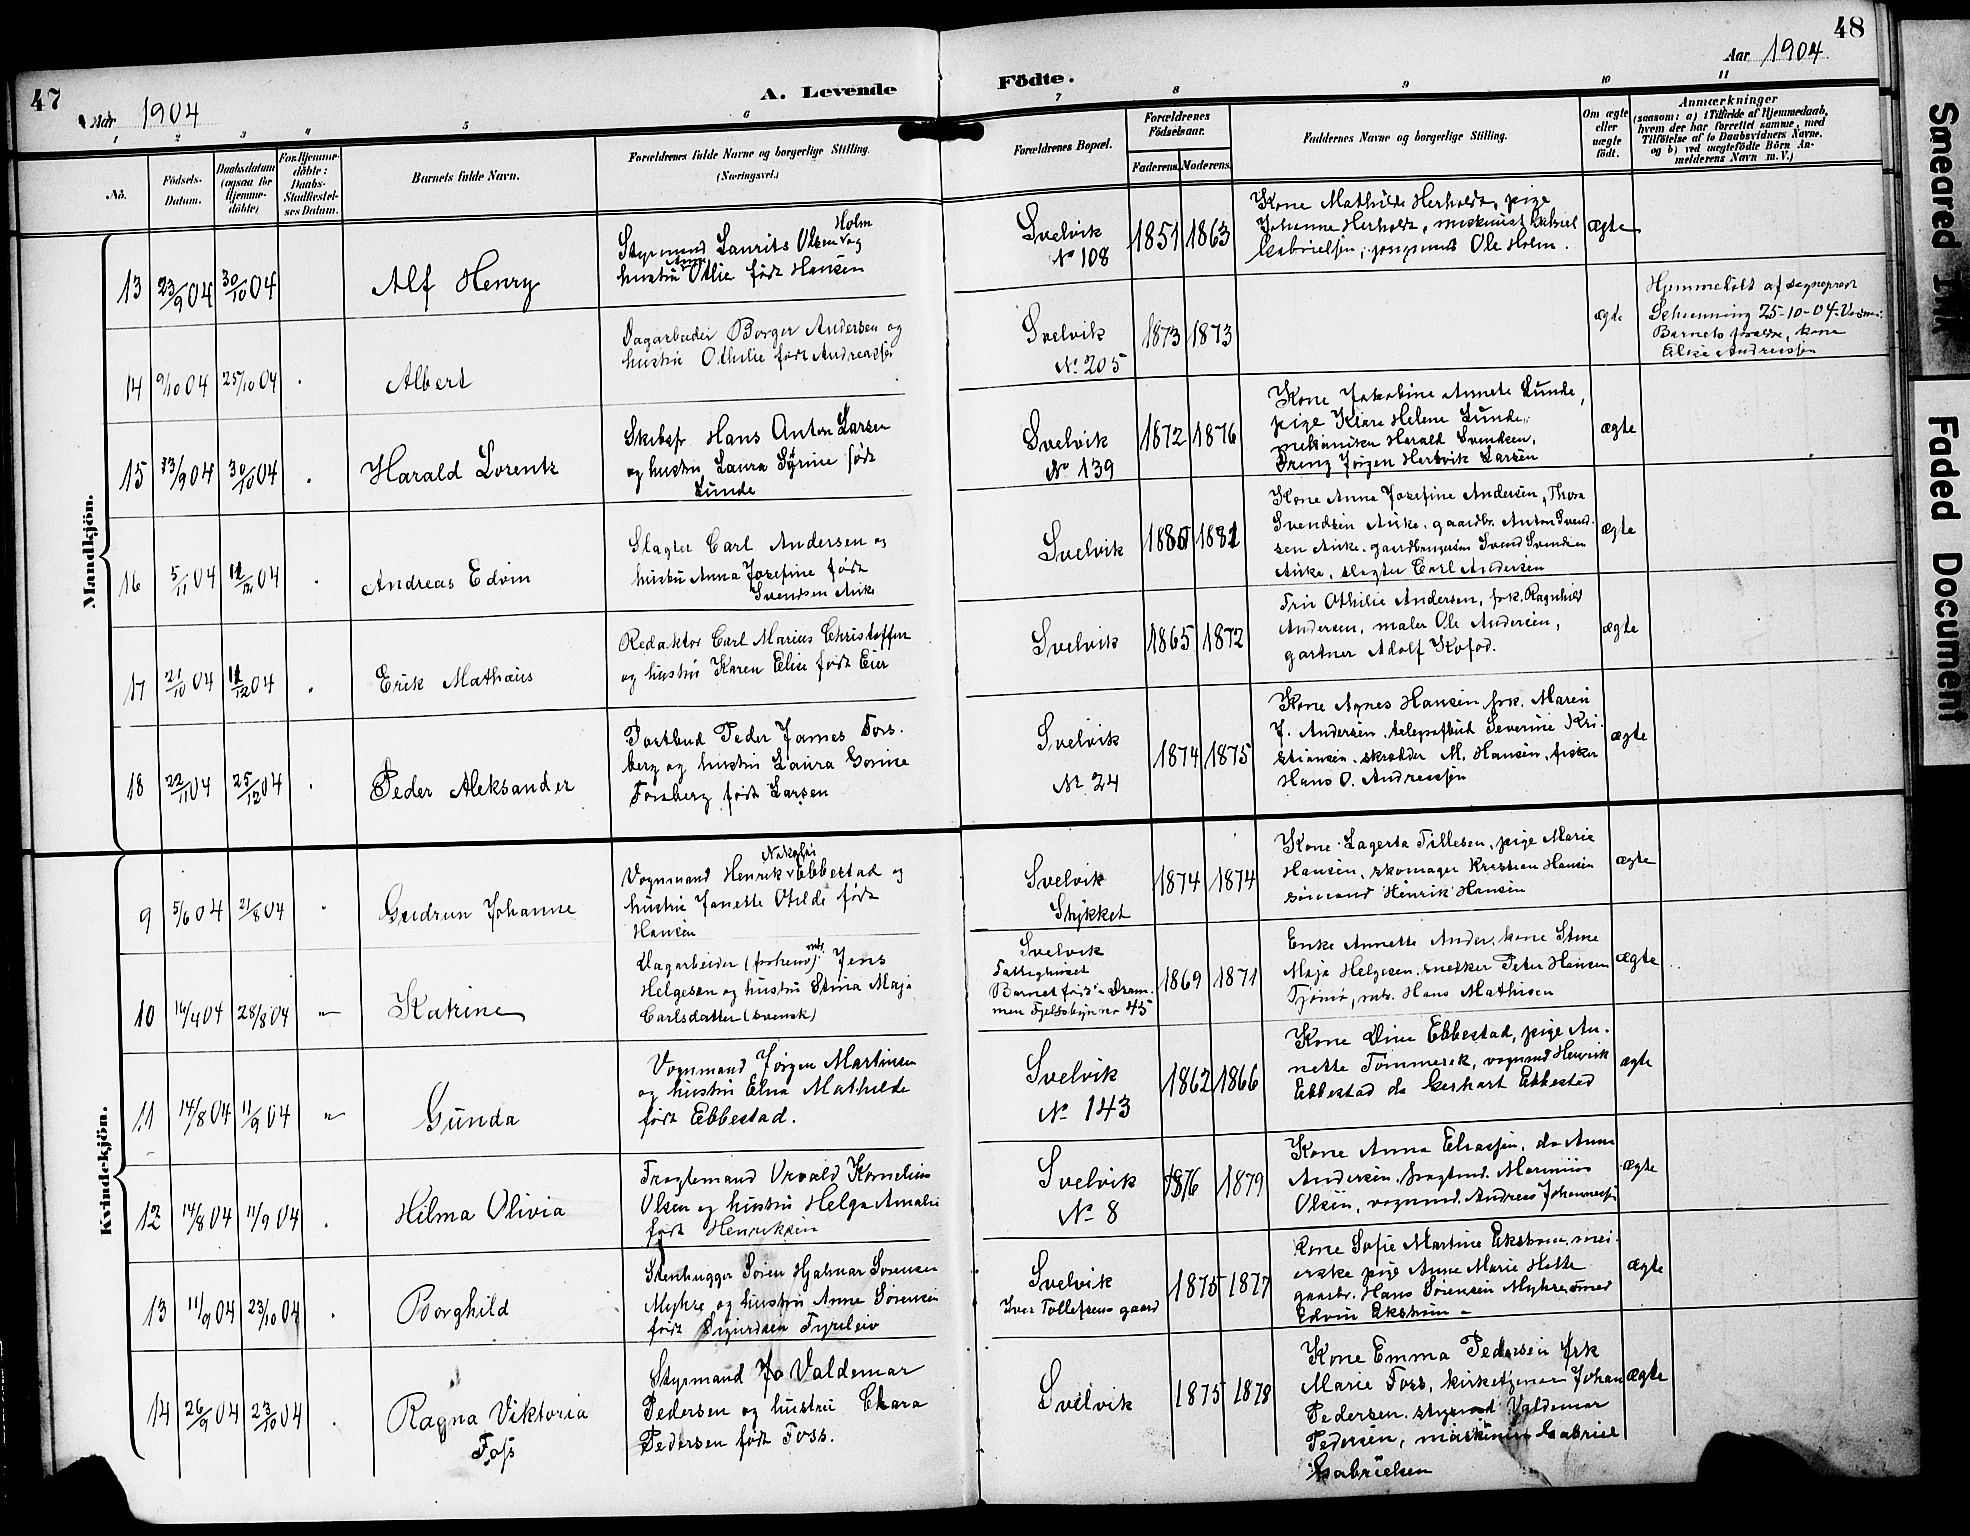 47
Aar 1904
A. Levende
Födte.
Aar 1904
48
1 2 3 4 5 6 7 8 9 10 11
No.
Födsels-
Datum.
Daabsdatum
(ogsaa for
Hjemme-
döbte)
For Hjemme-
döbte:
Daabs-
Stadfæstel-
ses Datum.
Barnets fulde Navn.
Forældrenes fulde Navne og borgerlige Stilling.
(Næringsvei.)
Forældrenes Bopæl.
Forældrenes
Födselsaar.
Faderens. Moderens.
Faddernes Navne og borgerlige Stilling.
Om ægte
eller
uægte
födt.
Anmærkninger
(saasom: a) i Tilfælde af Hjemmedaab,
hvem der har forrettet samme, med
Tilföielse af to Daabsvidners Navne.
og b) ved uægtefödte Börn An-
melderens Navn m. V.)
Mandkjön.
13 23/9 04 30/10 04
Alf Henry
Holm
Styrmand Laurits Olsen og
Anna
hustru Otlie født Hansen
Svelvik
No 108
1851 1863
Kone Mathilde Herholdt, pige
Johanne Herholdt, maskinist Gabriel
Gabrielsen, jongmand Ole Holm.
ægte
14 9/10 04 25/10 04
Albert
Dagarbeider Borger Andersen og
hustru Othilie født Andreassen
Svelvik
No 205
1873 1873
ægte
Hjemmedøbt af sogneprest
Schenning 25-10-04.
Barnets forældre, kone
Elise Andreassen
15 13/9 04 30/10 04
Harald Lorentz
Skibsf. Hans Anton Larsen
og hustru Laura Syrine født
Lunde
Svelvik
No 139
1872 1876
Kone Jakobine Annete Lunde,
pige Klara Helene Lunde,
mekaniker Harald Svendsen,
Dreng Jørgen Hertvik Larsen
ægte
16 5/11 04 11/12 04
Andreas Edvin
Slagter Carl Andersen og
hustru Anna Josefine født
Svendsen Aiske
Svelvik
1880 1881
Kone Anna Josefine Andersen, Thora
Svendsen Aiske, gaardbr. Anton Svend-
sen Aiske, gaardbrugersøn Svend Svendsen
Aiske, slagter Carl Andersen
ægte
17 21/10 04 11/12 04
Erik Mathæus
Redaktør Carl Marius Christoffersen
og hustru Karen Elise født Eier
Svelvik
1865 1872
Fru Othilie Andersen, frk. Ragnhild
Andersen, maler Ole Andersen,
gartner Adolf Kofod.
ægte
18 22/11 04 25/12 04
Peder Aleksander
Postbud Peder James Fors-
berg og hustru Laura Gorine
Forsberg født Larsen
Svelvik
No 24
1874 1875
Kone Agnes Hansen, frk. Maren
J. Andersen, telegrafbud Severine Kri-
stiansen, skrædder M. Hansen, fisker
Hans O. Andreassen
ægte
Kvindekjön.
9 5/6 04 21/8 04
Gudrun Johanne
Nikolai
Vognmand Henrik Ebbestad og
hustru Janette Otilde født
Hansen
Svelvik
Stykket
1874 1874
Kone Lagerta Tillesen, pige Marie
Hansen, skomager Kristian Hansen
sømand Henrik Hansen
ægte
10 16/4 04 28/8 04
Katrine
Dagarbeider Jens
Helgesen og hustru Stina Maja
Carlsdatter (svensk)
Svelvik
Fattighuset
Barnet født i Dram-
men Fjeldbyn no 45
1869 1871
Enke Annette Ander, kone Stine
Maja Helgesen, snekker Peter Hansen
Tjømø, mtr. Hans Mathisen
ægte
11 14/8 04 11/9 04
Gunda
Vognmand Jørgen Martinsen
og hustru Elna Mathilde
født Ebbestad.
Svelvik
No 143
1862 1866
Kone Dina Ebbestad, pige An-
nette Tømmerek, vognmd Henrik
Ebbestad do Gerhart Ebbestad
ægte
12 14/8 04 11/9 04
Hilma Olivia
Fragtemand Orvald Kornelius
Olsen og hustru Helga Amalie
født Henriksen
Svelvik
No 8
1876 1879
Kone Anna Eliassen, do Anna
Andersen, fragtmd. Marinius
Olsen, vognmd. Andreas Johannesen
ægte
13 11/9 04 23/10 04
Borghild
Stenhugger Søren Hjalmar Sørensen
Myhre og hustru Anna Sørensen
født Sigurdsen Fyrileiv
Svelvik
Iver Tollefsens gaard
1875 1877
Kone Sofie Martine Ekstrøm, mei-
erske pige Anne Marie Hotte
gaardbr. Hans Sørensen Myhre, sømand
Edvin Ekstrøm
ægte
14 26/9 04 23/10 04
Ragna Viktoria
Foss
Styrmand Jo Valdemar
Pedersen og hustru Clara
Pedersen født Foss.
Svelvik
1875 1878
Kone Emma Pedersen frk
Marie Foss, kirketjener Johan
Pedersen, styrmd Valdemar
Pedersen, maskinist Gabriel
Gabrielsen
ægte
Smeared Ink
Faded Document